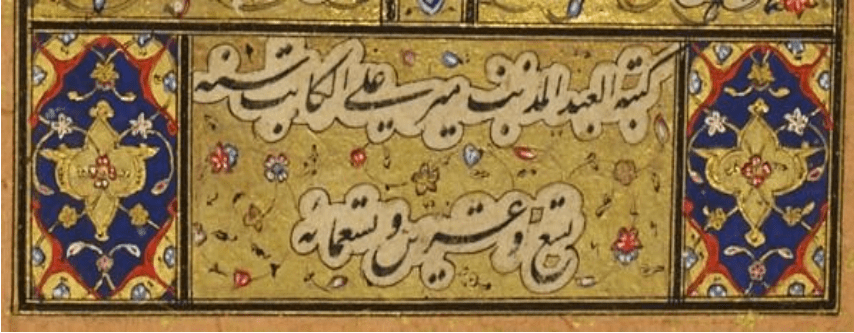 كتبه العبد المذنب مير علي الكاتب سنه
تسع و عشرين و تسعمائه